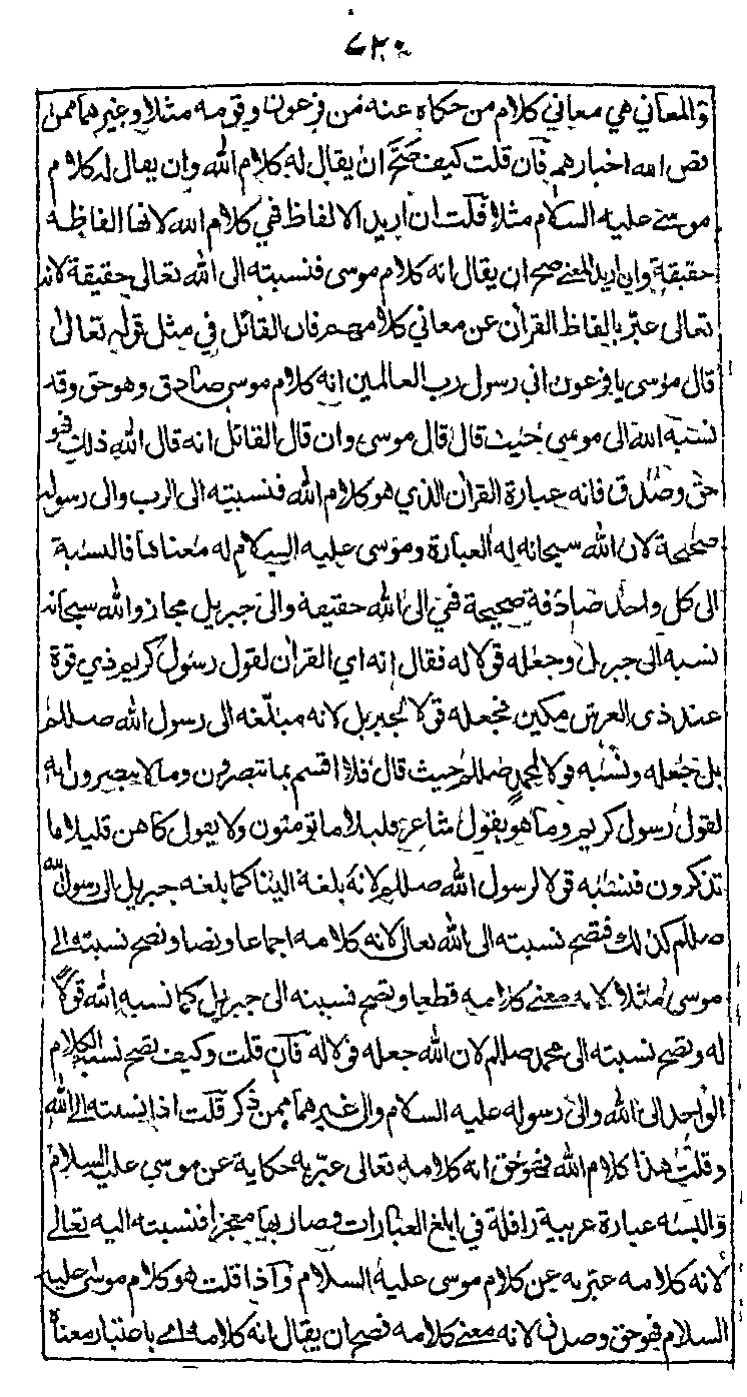 ٧٣٠
والمعاني هي معاني كلام من حكاه عنه من فرعون وقومه مثلا وغيرهما ممن
قص الله اخبارهم فان قلت كيف صح ان يقال له كلام الله وان يقال له كلام
موسى عليه السلام مثلا قلت ان اريد الالفاظ فهي كلام الله لانها الفاظه
حقيقة وان اريد المعنى صح ان يقال انه كلام موسى فنسبته الى الله تعالى حقيقة لانه
تعالى عبر بالفاظ القران عن معاني كلامهم فان القائل في مثل قوله تعالى
قال موسى يا فرعون اني رسول رب العالمين انه كلام موسى صادق وهو حق وقد
نسبه الله الى موسى حيث قال قال موسى وان قال القائل انه قال الله ذلك فهو
حق وصدق فانه عبارة القران الذي هو كلام الله فنسبته الى الرب والى رسوله
صحيحة لان الله سبحانه له العبارة وموسى عليه السلام له معناها فالنسبة
الى كل واحد صادقة صحيحة فهي الى الله حقيقة والى جبريل مجاز والله سبحانه
نسبه الى جبريل وجعله قولا له فقال انه اي القران لقول رسول كريم ذي قوة
عند ذى العرش مكين فجعله قولا لجبريل لانه مبلغه الى رسول الله صللم
بل جعله ونسبه قولا لمحمد صللم حيث قال فلا اقسم بما تبصرون وما لا تبصرون انه
لقول رسول كريم وما هو بقول شاعر قليلا ما تومنون ولا بقول كاهن قليلا ما
تذكرون فنسبه قولا لرسول الله صللم لانه بلغه الينا كما بلغه جبريل الى رسول الله
صللم كذلك فتصح نسبته الى الله تعالى لانه كلامه اجماعا ونصا وتصح نسبته الى
موسى مثلا لانه معنى كلامه قطعا وتصح نسبته الى جبريل كما نسبه الله قولا
له وتصح نسبته الى محمد صللم لان الله جعله قولا له فان قلت وكيف تصح نسبة الكلام
الواحد الى الله والى رسوله عليه السلام والى غيرهما ممن ذكر قلت اذا نسبته الى الله
وقلت هذا كلام الله فهو حق انه كلامه تعالى عبر به حكاية عن موسى عليه السلام
والبسه عبارة عربية رافلة في ابلغ العبارات وصار بها معجزا فنسبته اليه تعالى
لانه كلامه عبر به عن كلام موسى عليه السلام واذا قلت هو كلام موسى عليه
السلام فهو حق وصدق لانه معنى كلامه فصح ان يقال انه كلامه اي باعتبار معناه